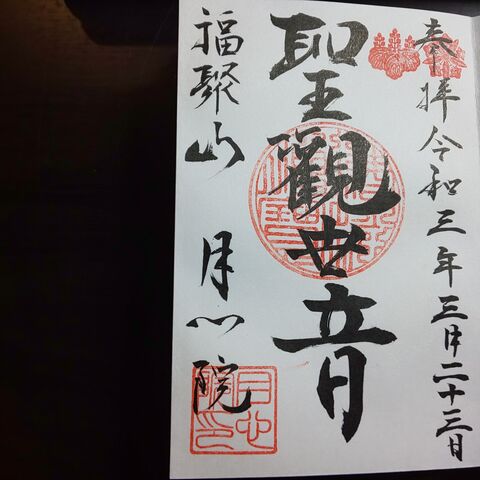 奉拝 令和三年三月二十三日
聖觀世音
福聚山 月心院
月心院印